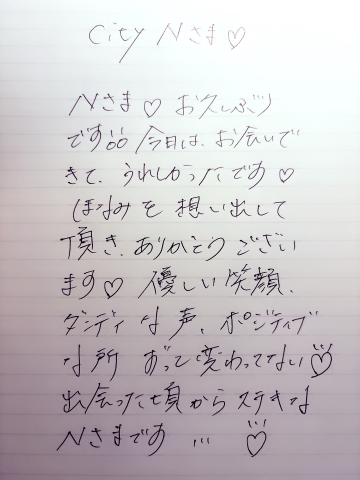 City Nさま♡
Nさま♡ お久しぶり
です😊 今日は、お会いで
きて、うれしかったです♡
ほなみを想い出して
頂き、ありがとうござい
ます♡ 優しい笑顔、
ダンディな声、ポジティブ
な所 ずって変わってない♡
出会った頃からステキな
Nさまです…♡